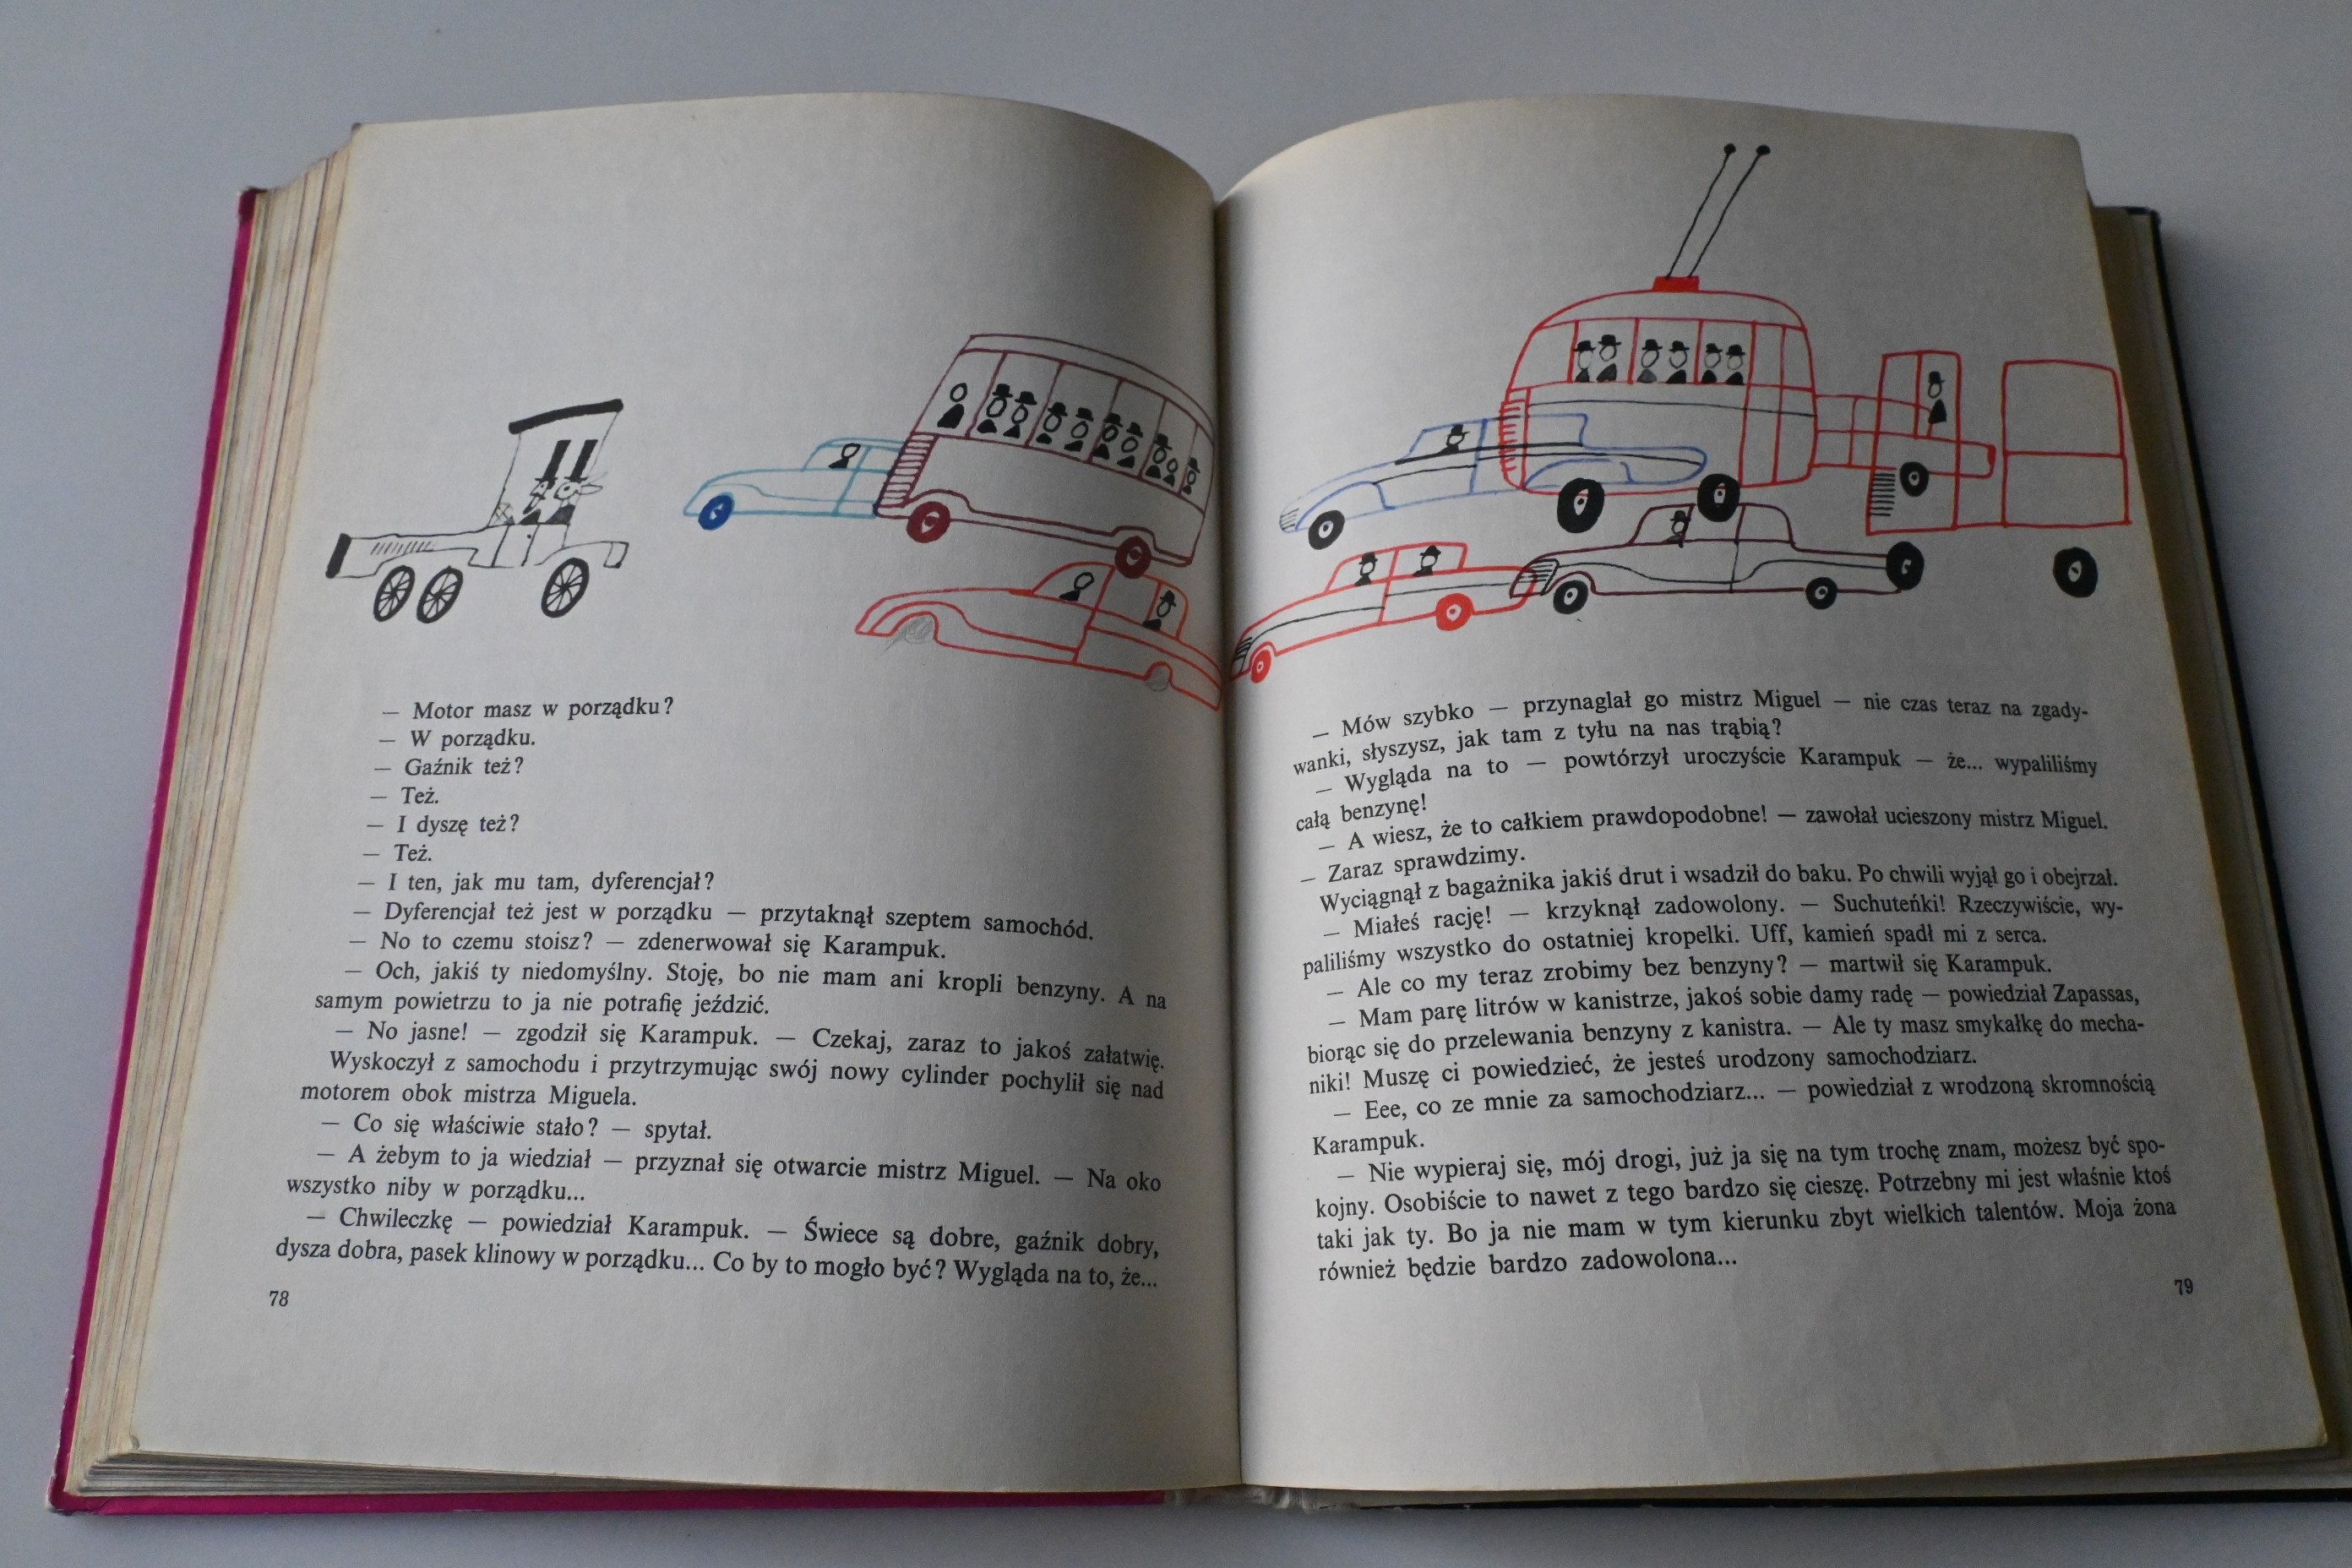 — Motor masz w porządku?
— W porządku.
— Gaźnik też?
— Też.
— I dyszę też?
— Też.
— I ten, jak mu tam, dyferencjał?
— Dyferencjał też jest w porządku — przytaknął szeptem samochód.
— No to czemu stoisz? — zdenerwował się Karampuk.
— Och, jakiś ty niedomyślny. Stoję, bo nie mam ani kropli benzyny. A na
samym powietrzu to ja nie potrafię jeździć.
— No jasne! — zgodził się Karampuk. — Czekaj, zaraz to jakoś załatwię.
Wyskoczył z samochodu i przytrzymując swój nowy cylinder pochylił się nad
motorem obok mistrza Miguela.
— Co się właściwie stało? — spytał.
— A żebym to ja wiedział — przyznał się otwarcie mistrz Miguel. — Na oko
wszystko niby w porządku...
— Chwileczkę — powiedział Karampuk. — Świece są dobre, gaźnik dobry,
dysza dobra, pasek klinowy w porządku... Co by to mogło być? Wygląda na to, że...
78
— Mów szybko — przynaglał go mistrz Miguel — nie czas teraz na zgady-
wanki, słyszysz, jak tam z tyłu na nas trąbią?
— Wygląda na to — powtórzył uroczyście Karampuk — że... wypaliliśmy
całą benzynę!
— A wiesz, że to całkiem prawdopodobne! — zawołał ucieszony mistrz Miguel.
— Zaraz sprawdzimy.
Wyciągnął z bagażnika jakiś drut i wsadził do baku. Po chwili wyjął go i obejrzał.
— Miałeś rację! — krzyknął zadowolony. — Suchuteńki! Rzeczywiście, wy-
paliliśmy wszystko do ostatniej kropelki. Uff, kamień spadł mi z serca.
— Ale co my teraz zrobimy bez benzyny? — martwił się Karampuk.
— Mam parę litrów w kanistrze, jakoś sobie damy radę — powiedział Zapassas,
biorąc się do przelewania benzyny z kanistra. — Ale ty masz smykałkę do mecha-
niki! Muszę ci powiedzieć, że jesteś urodzony samochodziarz.
— Eee, co ze mnie za samochodziarz... — powiedział z wrodzoną skromnością
Karampuk.
— Nie wypieraj się, mój drogi, już ja się na tym trochę znam, możesz być spo-
kojny. Osobiście to nawet z tego bardzo się cieszę. Potrzebny mi jest właśnie ktoś
taki jak ty. Bo ja nie mam w tym kierunku zbyt wielkich talentów. Moja żona
również będzie bardzo zadowolona...
79